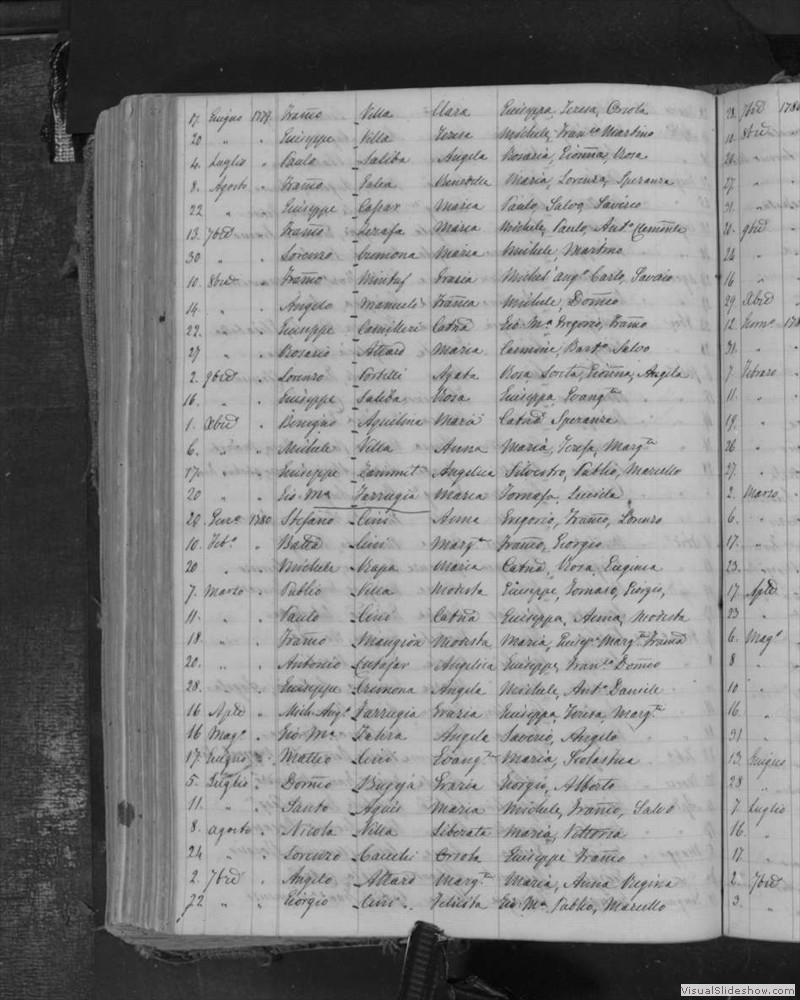 17. Giugno 1779. Franco Villa Clara Giuseppa, Teresa, Orsola
20 " " Giuseppe Villa Teresa Michele, Franco Martino
4. Luglio " Paulo Saliba Angela Rosaria, Gionna, Rosa
8. Agosto " Franco Galea Benedetta Maria, Lorenza, Speranza
22 " " Giuseppe Caspar Maria Paulo Salvo, Saverio
13. 7bre " Franco Maria Michele, Paulo, Anto Clemente
30 " " Lorenzo Cremona Maria Michele, Martino
10. 8bre " Franco Mintuf Grazia Michel'ango Carlo, Saverio
14. " " Angelo Manueli Franca Michele, Domco
22. " " Giuseppe Camilleri Catna Gio Ma Gregorio, Franco
27 " " Rosario Attard Maria Carmine, Barto Salvo
2. 9bre " Lorenzo Portelli Agata Rosa Gionna, Angela
16. " " Giuseppe Saliba Rosa Giuseppa, Evangta
1. Xbre " Benigno Aquilina Maria Catna Speranza
6. " " Michele Villa Anna Maria, Teresa, Margta
17. " " Giuseppe Zammit Angelica Silvestro, Publio, Marcello
20 " " Gio Ma Farrugia Maria Tomasa, Lucida
20 Genro 1780 Stefano Cini Anna Gregorio, Franco, Lorenzo
10. Febo " Batta Cini Margta Franco, Giorgio
20 " " Michele Rapa Maria Catna, Rosa, Eugenia
7. Marzo " Publio Villa Modesta Giuseppe, Tomaso, Giorgio,
11. " " Paulo Cini Catna Giuseppa, Anna, Modesta
18 " " Franco Mangion Modesta Maria, Giusepa Margta Franca
20. " " Antonio Cutajar Angelica Giuseppe, Franco Domco
28. " " Giuseppe Cremona Angela Michele, Anto Daniele
16 Aple " Mich. Ango Farrugia Grazia Giuseppa, Teresa, Margta
16 Mago " Gio Ma Zahra Angela Saverio, Angelo
17 Giugno " Matteo Cini Evangta Maria, Scolastica
5. Luglio " Domco Bugeja Grazia Giorgio, Alberto
11. " " Santo Agius Maria Michele, Franco, Salvo
8. agosto " Nicola Villa Liberata Maria, Vittoria
24 " " Lorenzo Cauchi Orsola Giuseppe Franco
2. 7bre " Angelo Attard Margta Maria, Anna Regina
22 " " Giorgio Cini Felicita Gio Ma, Publio, Marcello
28. 7bre 178
10. 8bre
20. "
27. "
31. "
21. 9bre
24 "
16 "
29. Xbre
12. Genro 178
31. "
7. Febraro
11. "
19. "
26 "
27. "
2. Marzo
6. "
17. "
23. "
17. Aple
23 "
6. Mago
8 "
10 "
16. "
31 "
13. Giugno
28 "
7. Luglio
16. "
17. "
2. 7bre
3. "
VisualSlideshow.com